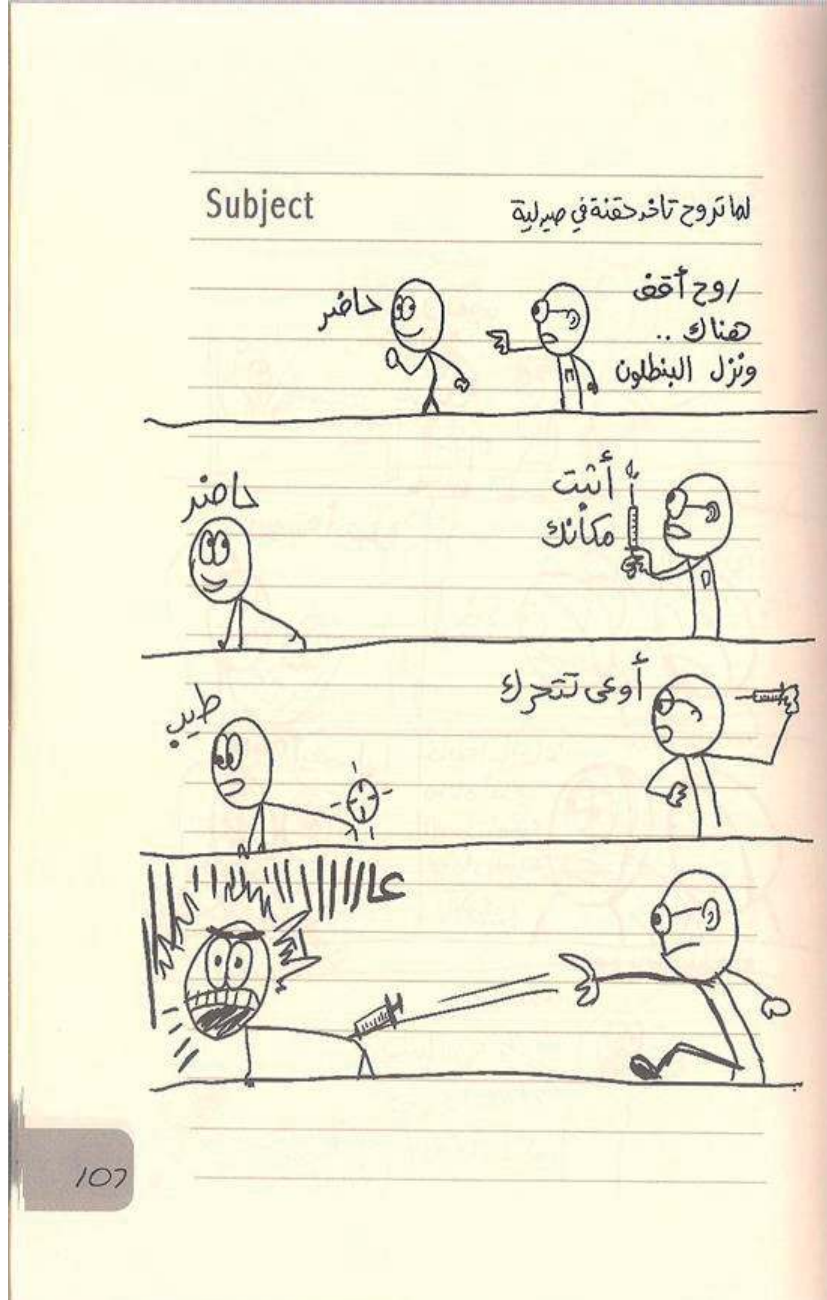 Subject
لما تروح تاخد حقنة في صيدلية
روح أقف
هناك ..
ونزل البنطلون
حاضر
أثبت
مكانك
حاضر
أوعى تتحرك
طيب
عااااااااا
107